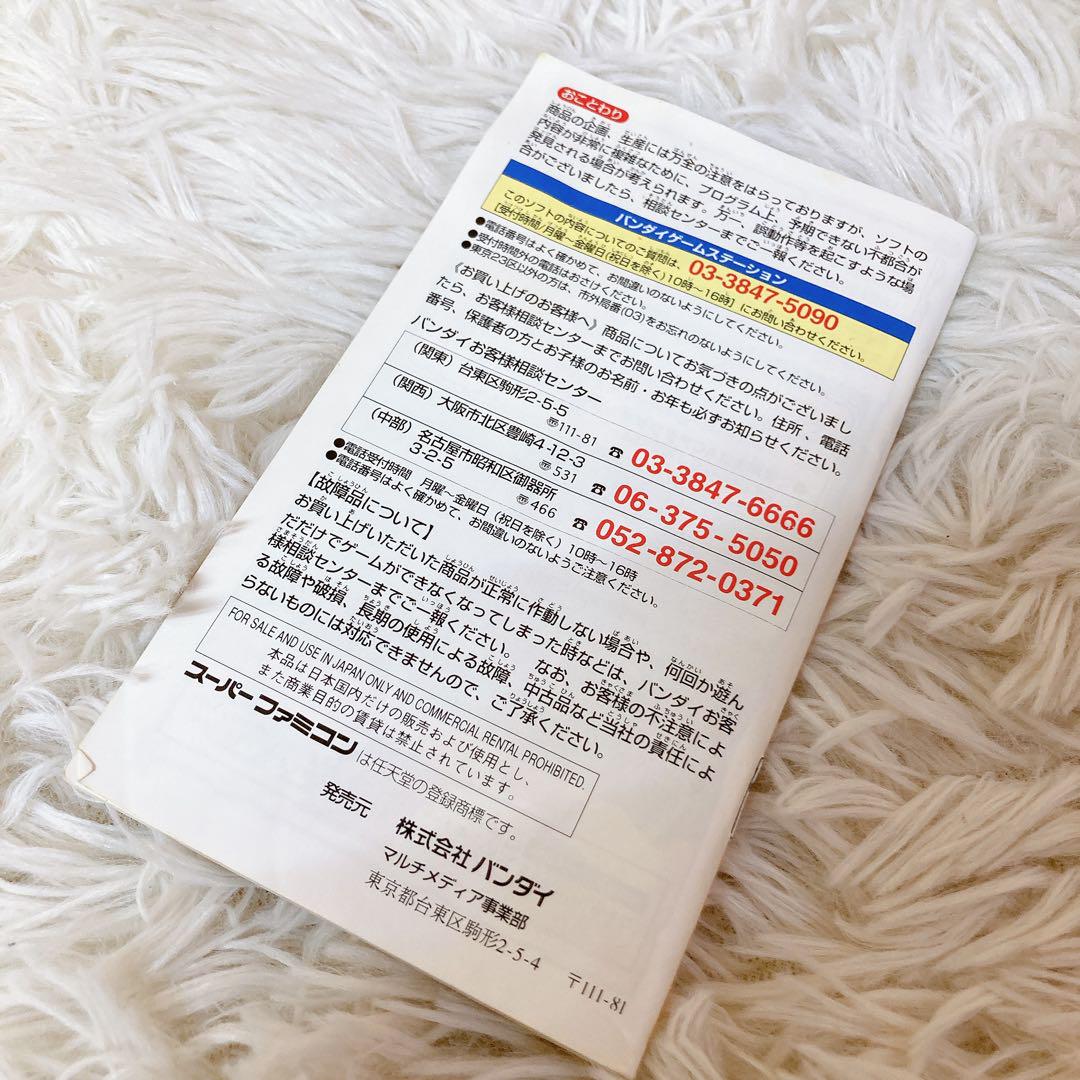 おことわり
商品の企画、生産には万全の注意をはらっておりますが、ソフトの
内容が非常に複雑なために、プログラム上、予期できない不都合が
発見される場合が考えられます。万一、誤動作等を起こすような場
合がございましたら、相談センターまでご一報ください。
バンダイゲームステーション
このソフトの内容についてのご質問は、03-3847-5090
[受付時間/月曜〜金曜日(祝日を除く)10時〜16時]にお問い合わせください。
●電話番号はよく確かめて、お間違いのないようにしてください。
●受付時間外の電話はおさけください。
●東京23区以外の方は、市外局番(03)をお忘れのないようにしてください。
《お買い上げのお客様へ》商品についてお気づきの点がございまし
たら、お客様相談センターまでお問い合わせください。住所、電話
番号、保護者の方とお子様のお名前・お年も必ずお知らせください。
バンダイお客様相談センター
(関東) 台東区駒形2-5-5
〠111-81 ☎ 03-3847-6666
(関西) 大阪市北区豊崎4-12-3
〠531 ☎ 06-375-5050
(中部) 名古屋市昭和区御器所
3-2-5 〠466 ☎ 052-872-0371
●電話受付時間 月曜〜金曜日(祝日を除く)10時〜16時
●電話番号はよく確かめて、お間違いのないようご注意ください。
【故障品について】
お買い上げいただいた商品が正常に作動しない場合や、何回か遊ん
だだけでゲームができなくなってしまった時などは、バンダイお客
様相談センターまでご一報ください。なお、お客様の不注意によ
る故障や破損、長期の使用による故障、中古品など当社の責任によ
らないものには対応できませんので、ご了承ください。
FOR SALE AND USE IN JAPAN ONLY AND COMMERCIAL RENTAL PROHIBITED.
本品は日本国内だけの販売および使用とし、
また商業目的の賃貸は禁止されています。
スーパーファミコンは任天堂の登録商標です。
発売元 株式会社バンダイ
マルチメディア事業部
東京都台東区駒形2-5-4 〒111-81